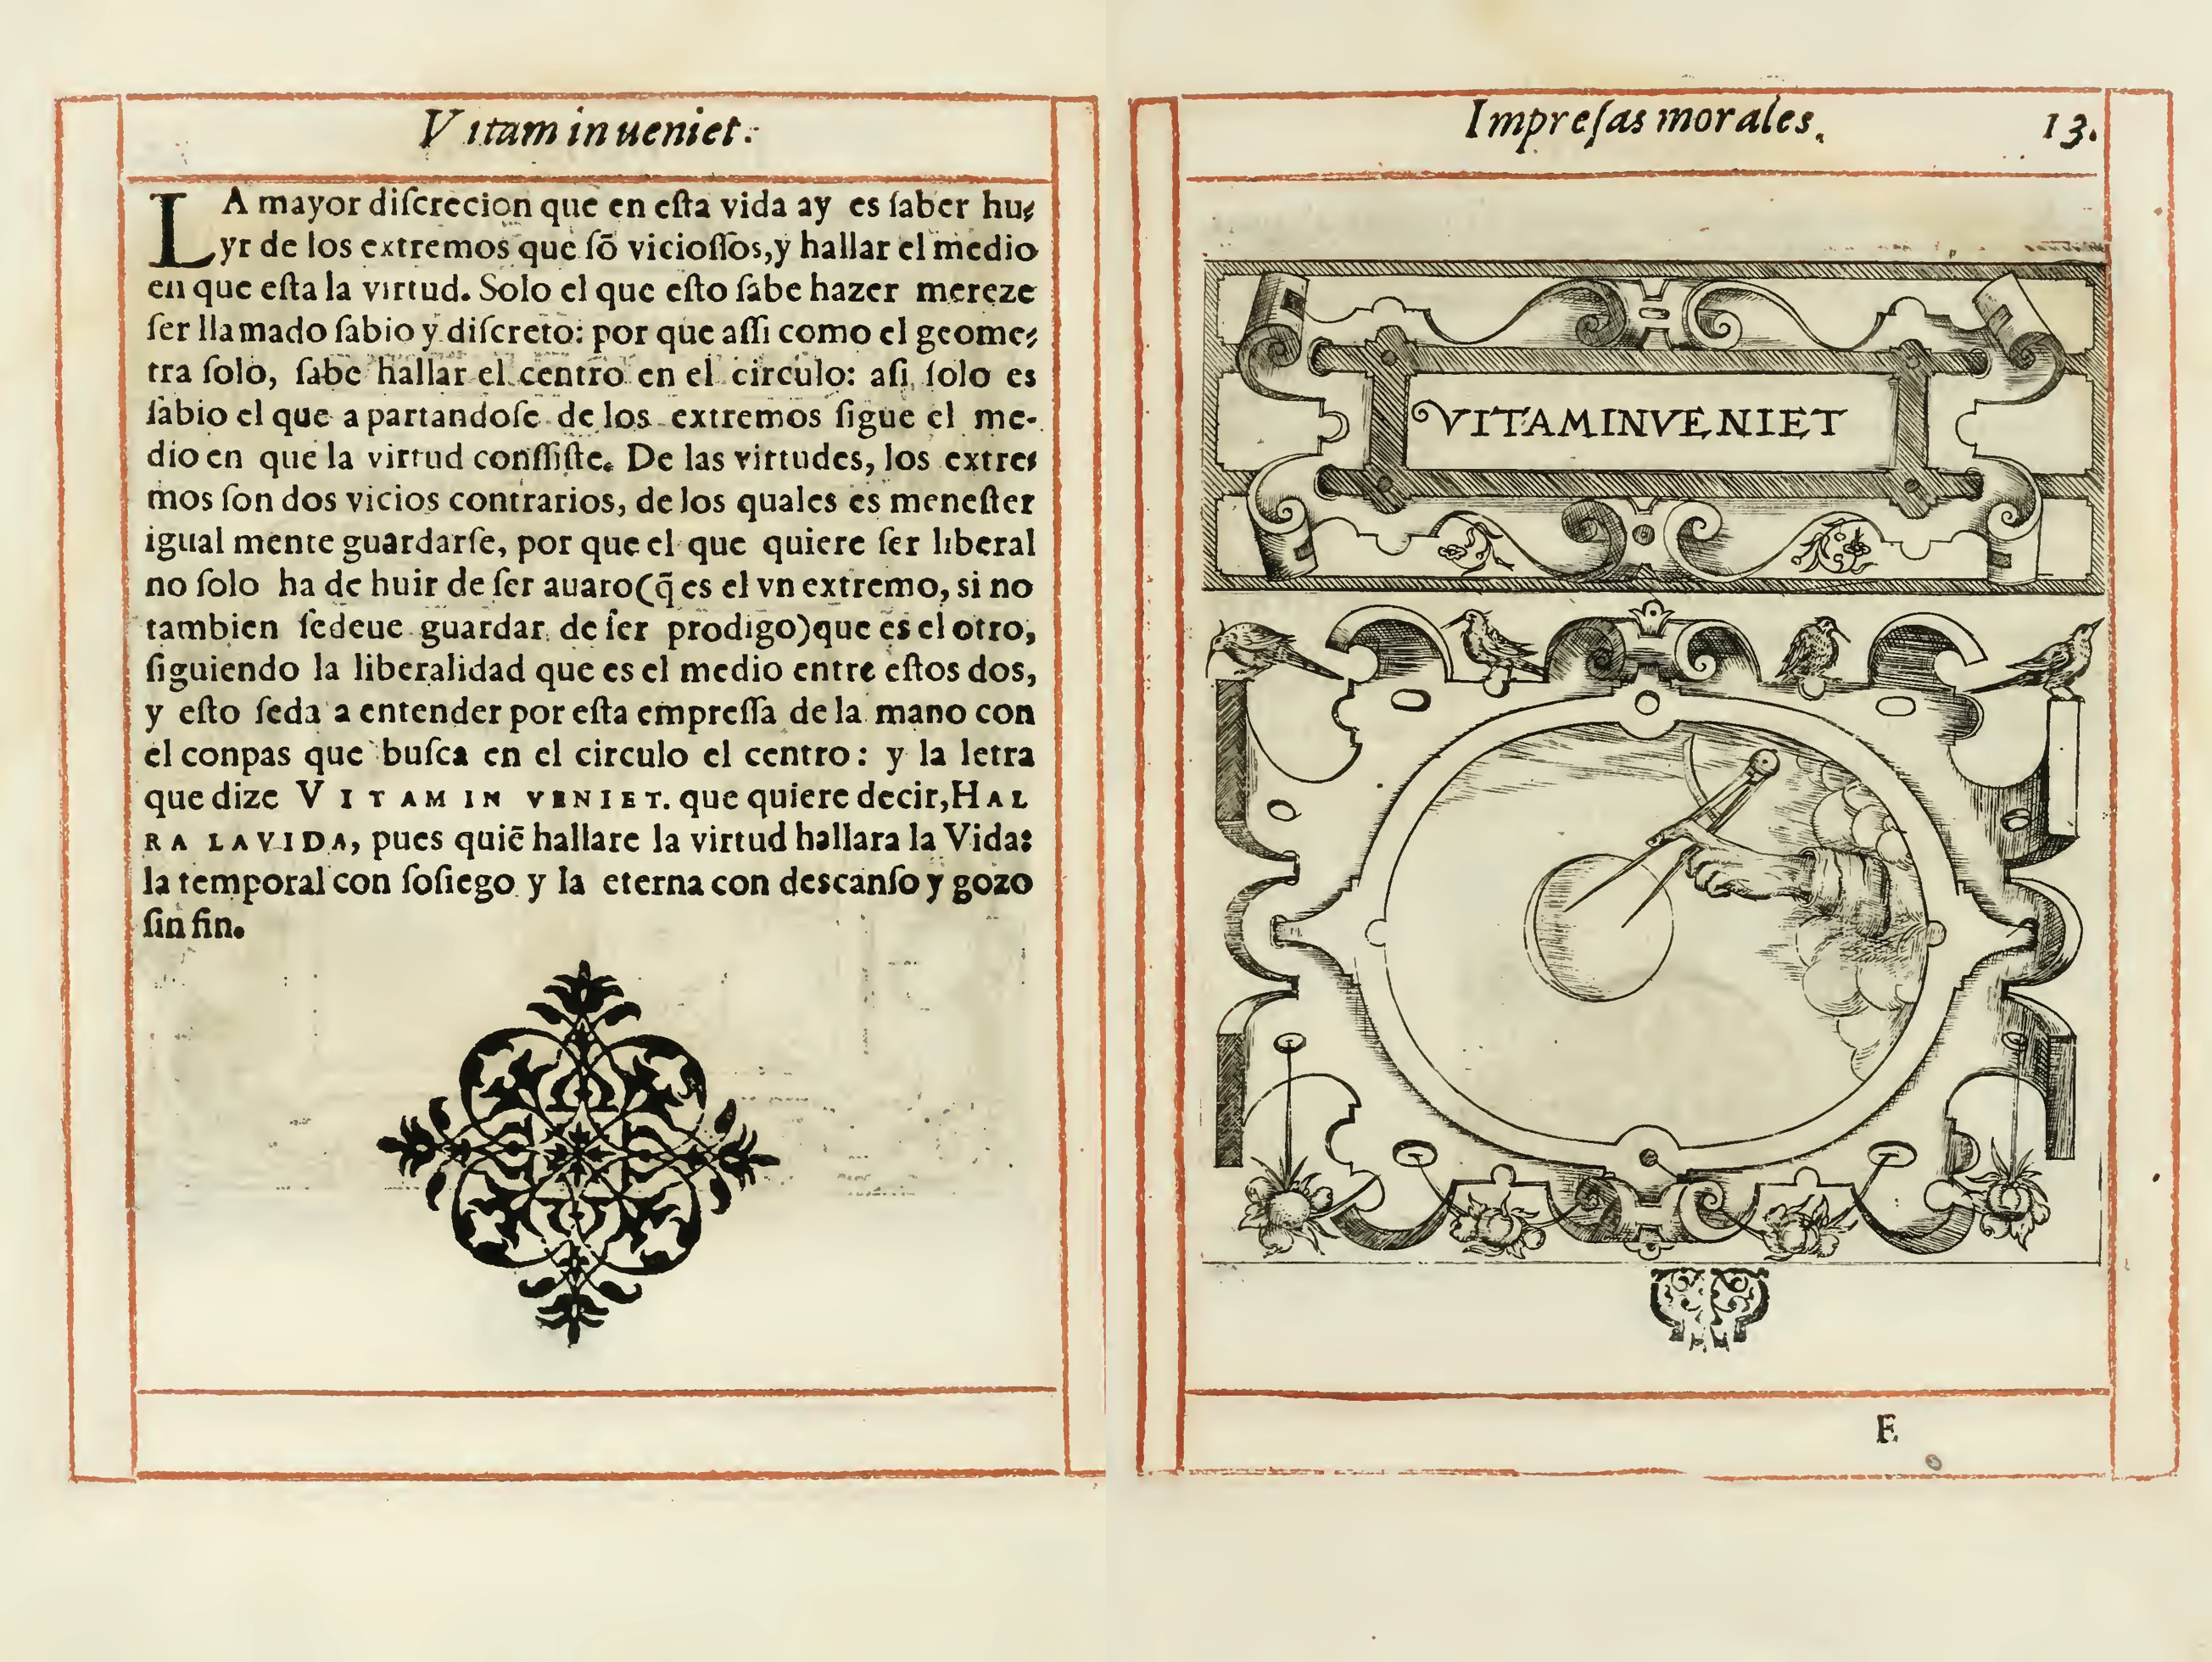 Vitam inueniet.
LA mayor diſcrecion que en eſta vida ay es ſaber hu-
yr de los extremos que ſõ vicioſſos, y hallar el medio
en que eſta la virtud. Solo el que eſto ſabe hazer mereze
ſer llamado ſabio y diſcreto: por que aſſi como el geome-
tra ſolo, ſabe hallar el centro en el circulo: aſi, ſolo es
ſabio el que a partandoſe de los extremos ſigue el me-
dio en que la virtud conſſiſte. De las virtudes, los extre-
mos ſon dos vicios contrarios, de los quales es meneſter
igual mente guardarſe, por que el que quiere ſer liberal
no ſolo ha de huir de ſer auaro(q̃ es el vn extremo, si no
tambien ſedeue guardar de ſer prodigo)que es el otro,
ſiguiendo la liberalidad que es el medio entre eſtos dos,
y eſto ſeda a entender por eſta empreſſa de la mano con
el conpas que buſca en el circulo el centro: y la letra
que dize VITAM IN VENIET. que quiere decir, HAL
RA LA VIDA, pues quiẽ hallare la virtud hallara la Vida:
la temporal con ſoſiego y la eterna con descanſo y gozo
ſin fin.
Impreſas morales. 13.
VITAM INVENIET
E